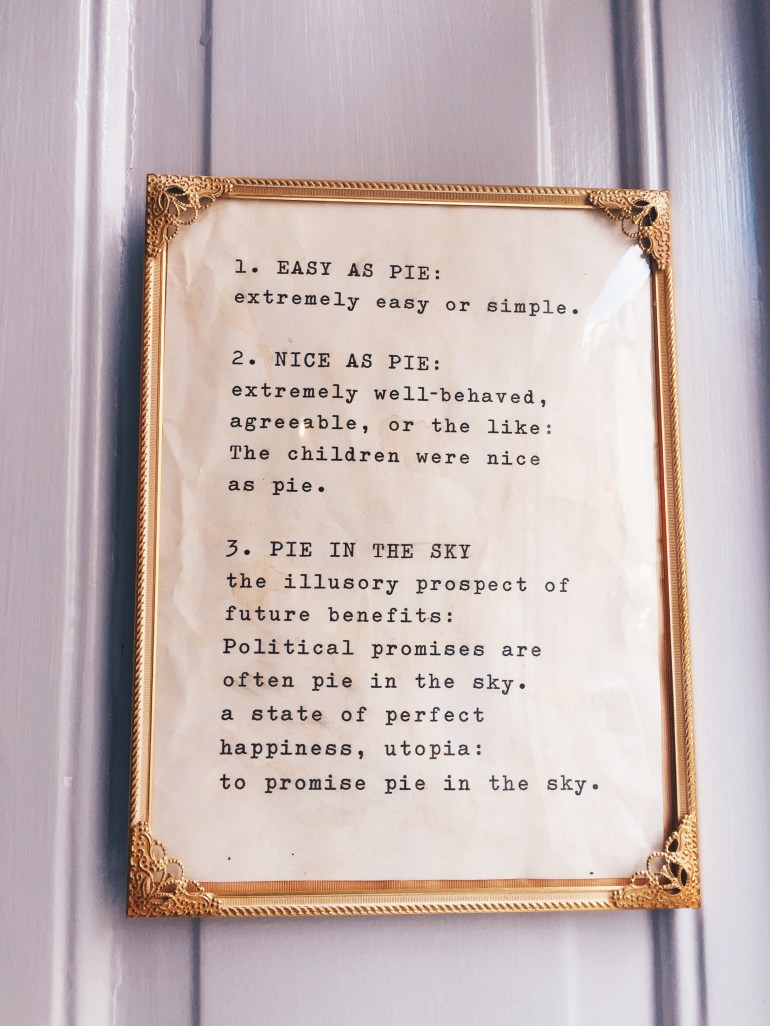 1. EASY AS PIE:
extremely easy or simple.
2. NICE AS PIE:
extremely well-behaved,
agreeable, or the like:
The children were nice
as pie.
3. PIE IN THE SKY
the illusory prospect of
future benefits:
Political promises are
often pie in the sky.
a state of perfect
happiness, utopia:
to promise pie in the sky.